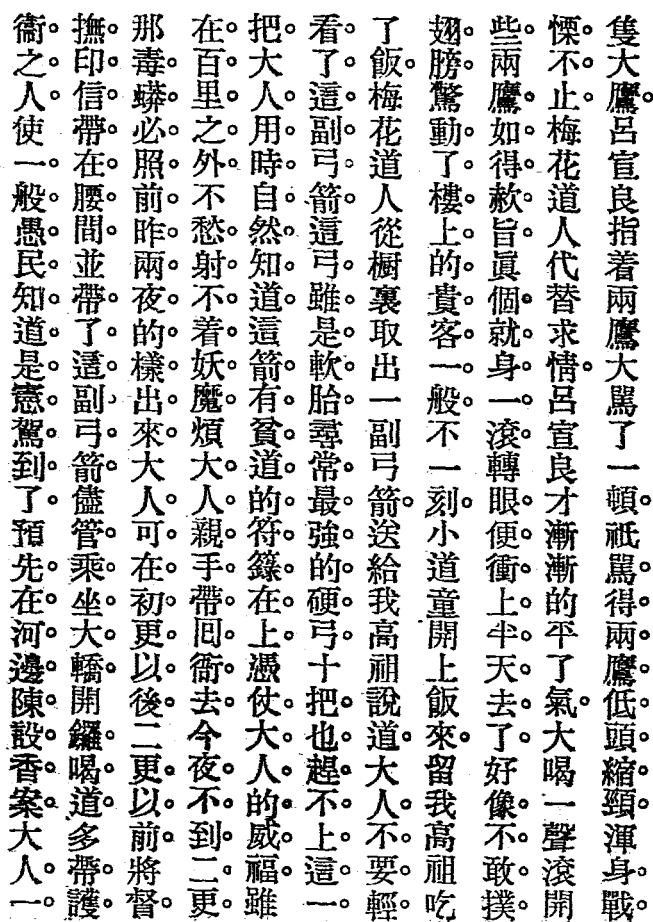 隻大鷹。呂宣良指着兩鷹大罵了一頓。祇罵得兩鷹低頭縮頸渾身戰
慄不止。梅花道人代替求情。呂宣良才漸漸的平了氣。大喝一聲滾開
些。兩鷹如得赦旨。眞個就身一滾。轉眼便衝上半天去了。好像不敢撲
翅膀驚動了樓上的貴客一般。不一刻小道童開上飯來。留我高祖吃
了飯。梅花道人從櫥裏取出一副弓箭。送給我高祖說道。大人不要輕
看了這副弓箭。這弓雖是軟胎。尋常最強的硬弓。十把也趕不上這一
把。大人用時自然知道。這箭有貧道的符籙在上。憑仗大人的威福。雖
在百里之外。不愁射不着妖魔。煩大人親手帶囘衙去。今夜不到二更。
那毒蟒必照前昨兩夜的樣出來。大人可在初更以後。二更以前。將督
撫印信帶在腰間。並帶了這副弓箭。儘管乘坐大轎。開鑼喝道。多帶護
衞之人。使一般愚民知道是憲駕到了。預先在河邊陳設香案。大人一